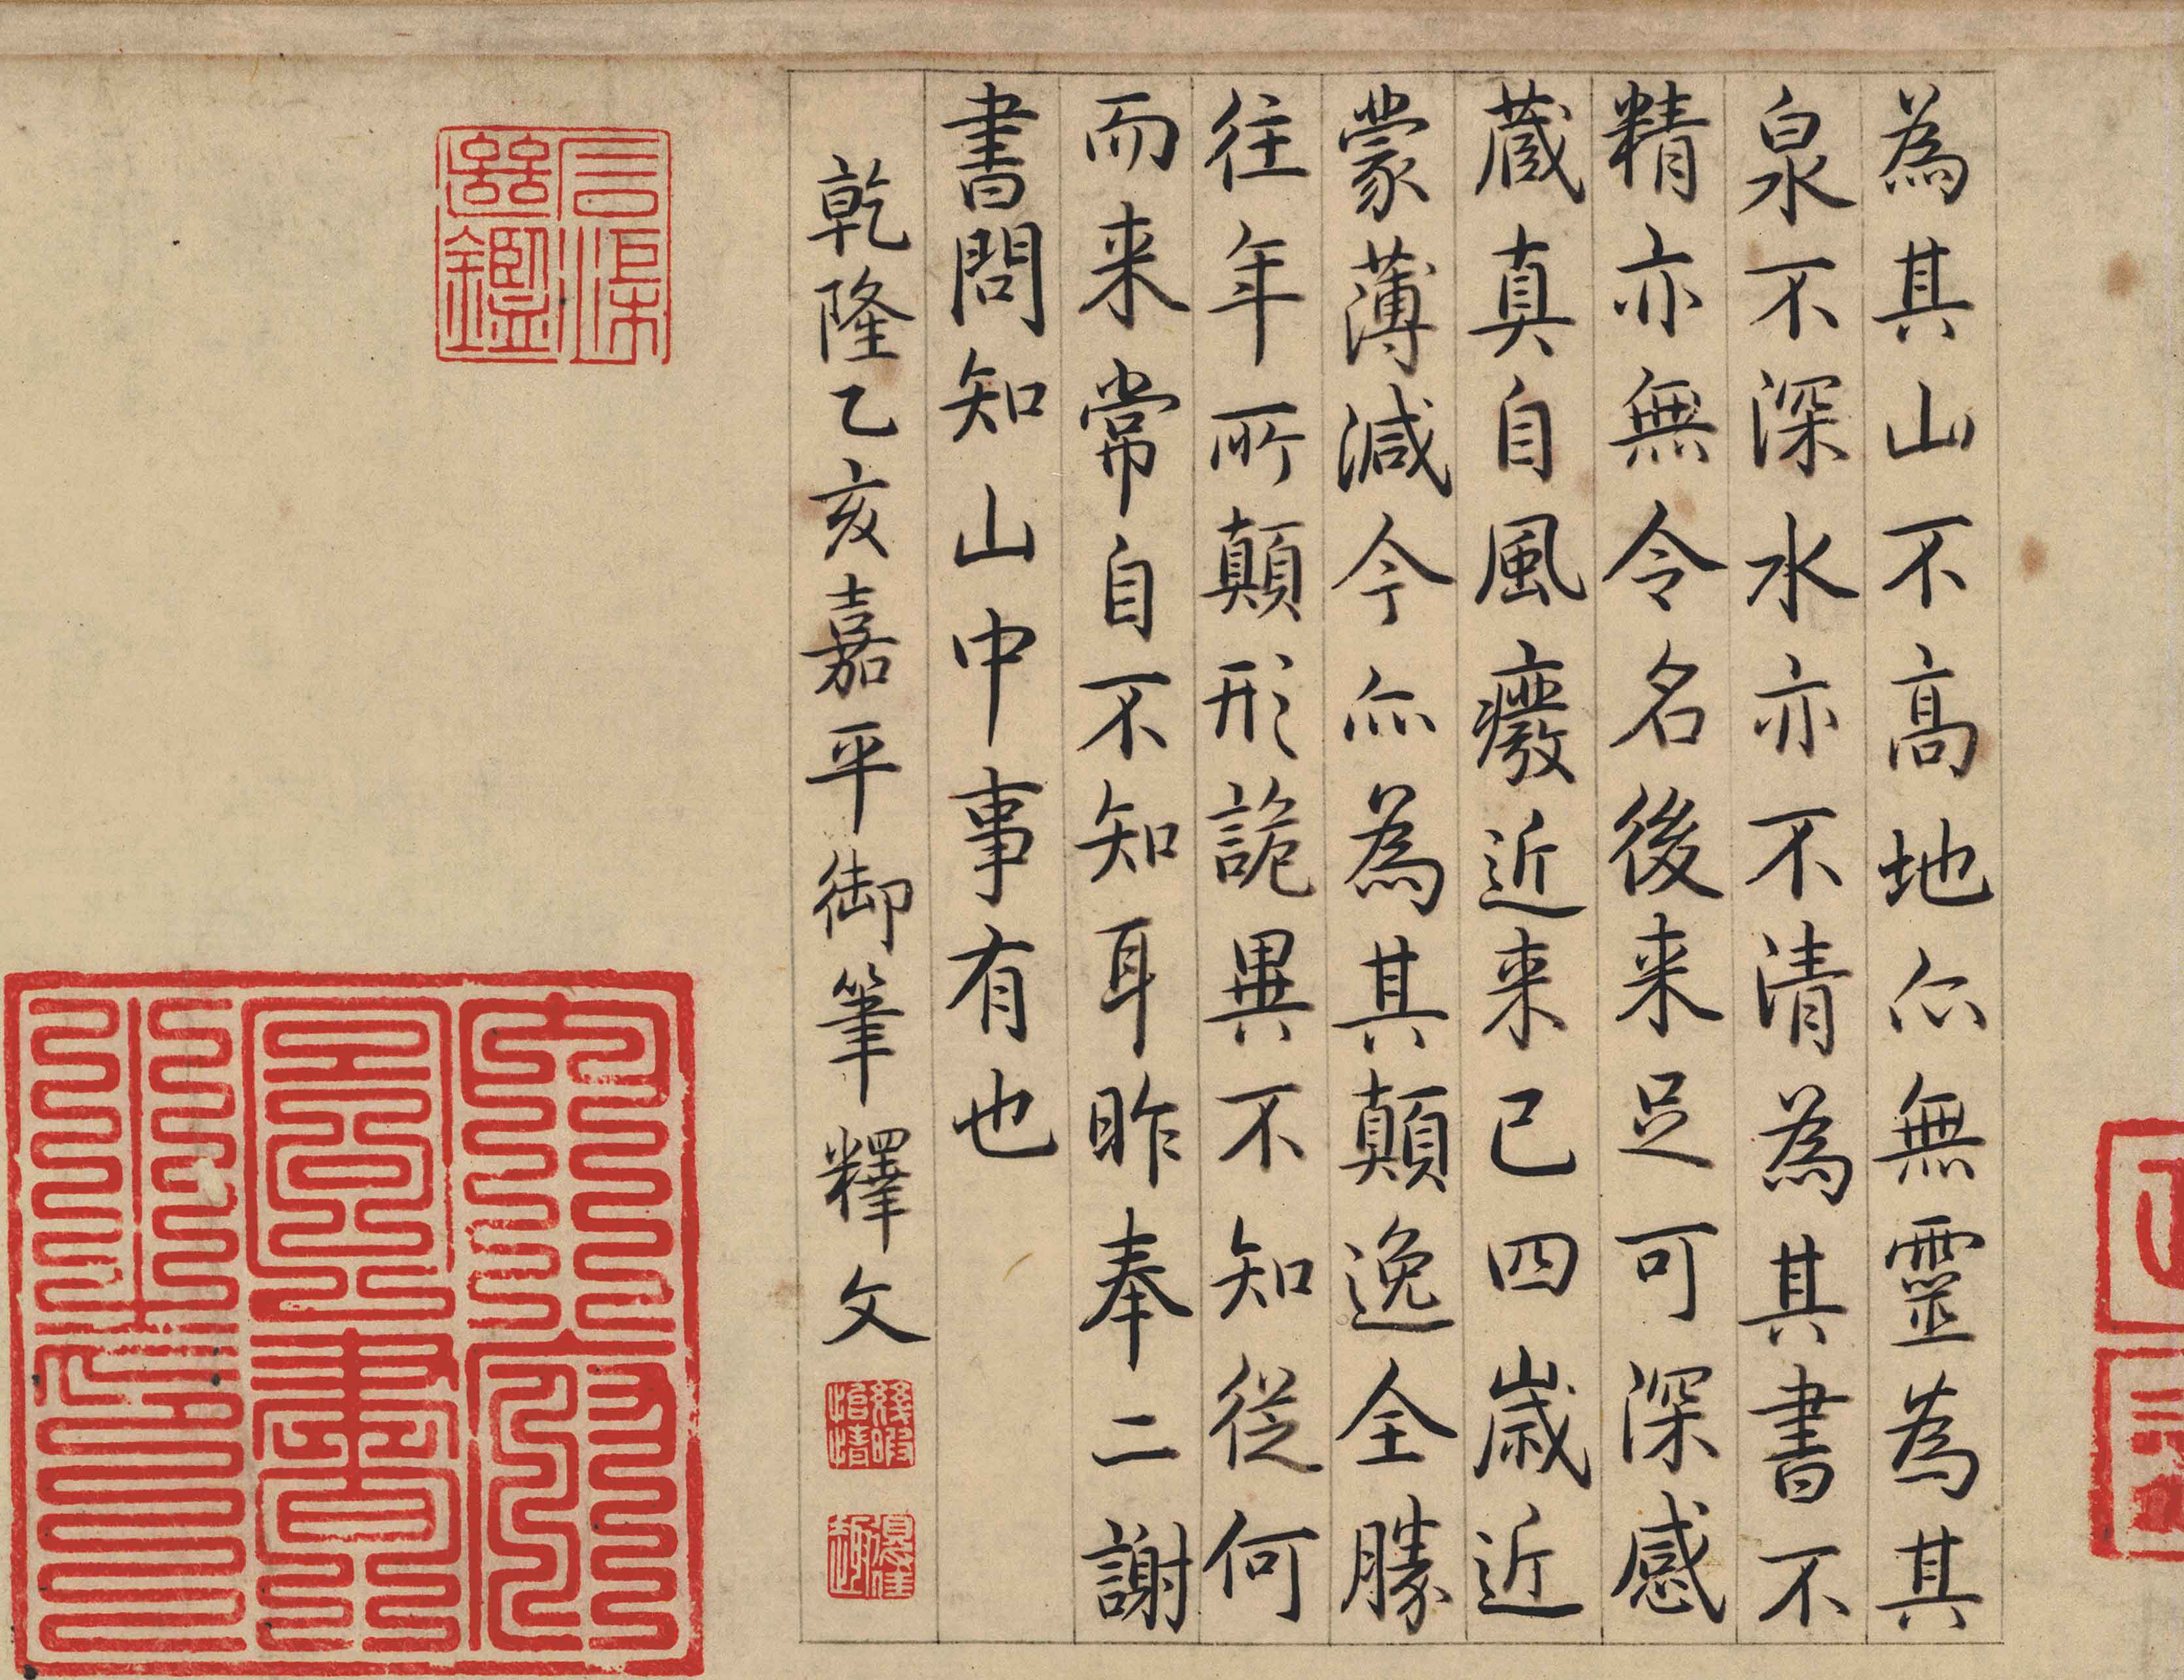 為其山不高地亦無靈為其
泉不深水亦不清為其書不
精亦無令名後来足可深感
蔵真自風癈近来已四歳近
蒙薄減今亦為其顛逸全勝
往年所顛形詭異不知從何
而来常自不知耳昨奉二謝
書問知山中事有也
乾隆乙亥嘉平御筆釋文
幾暇臨池
得佳趣
石渠寶鑑